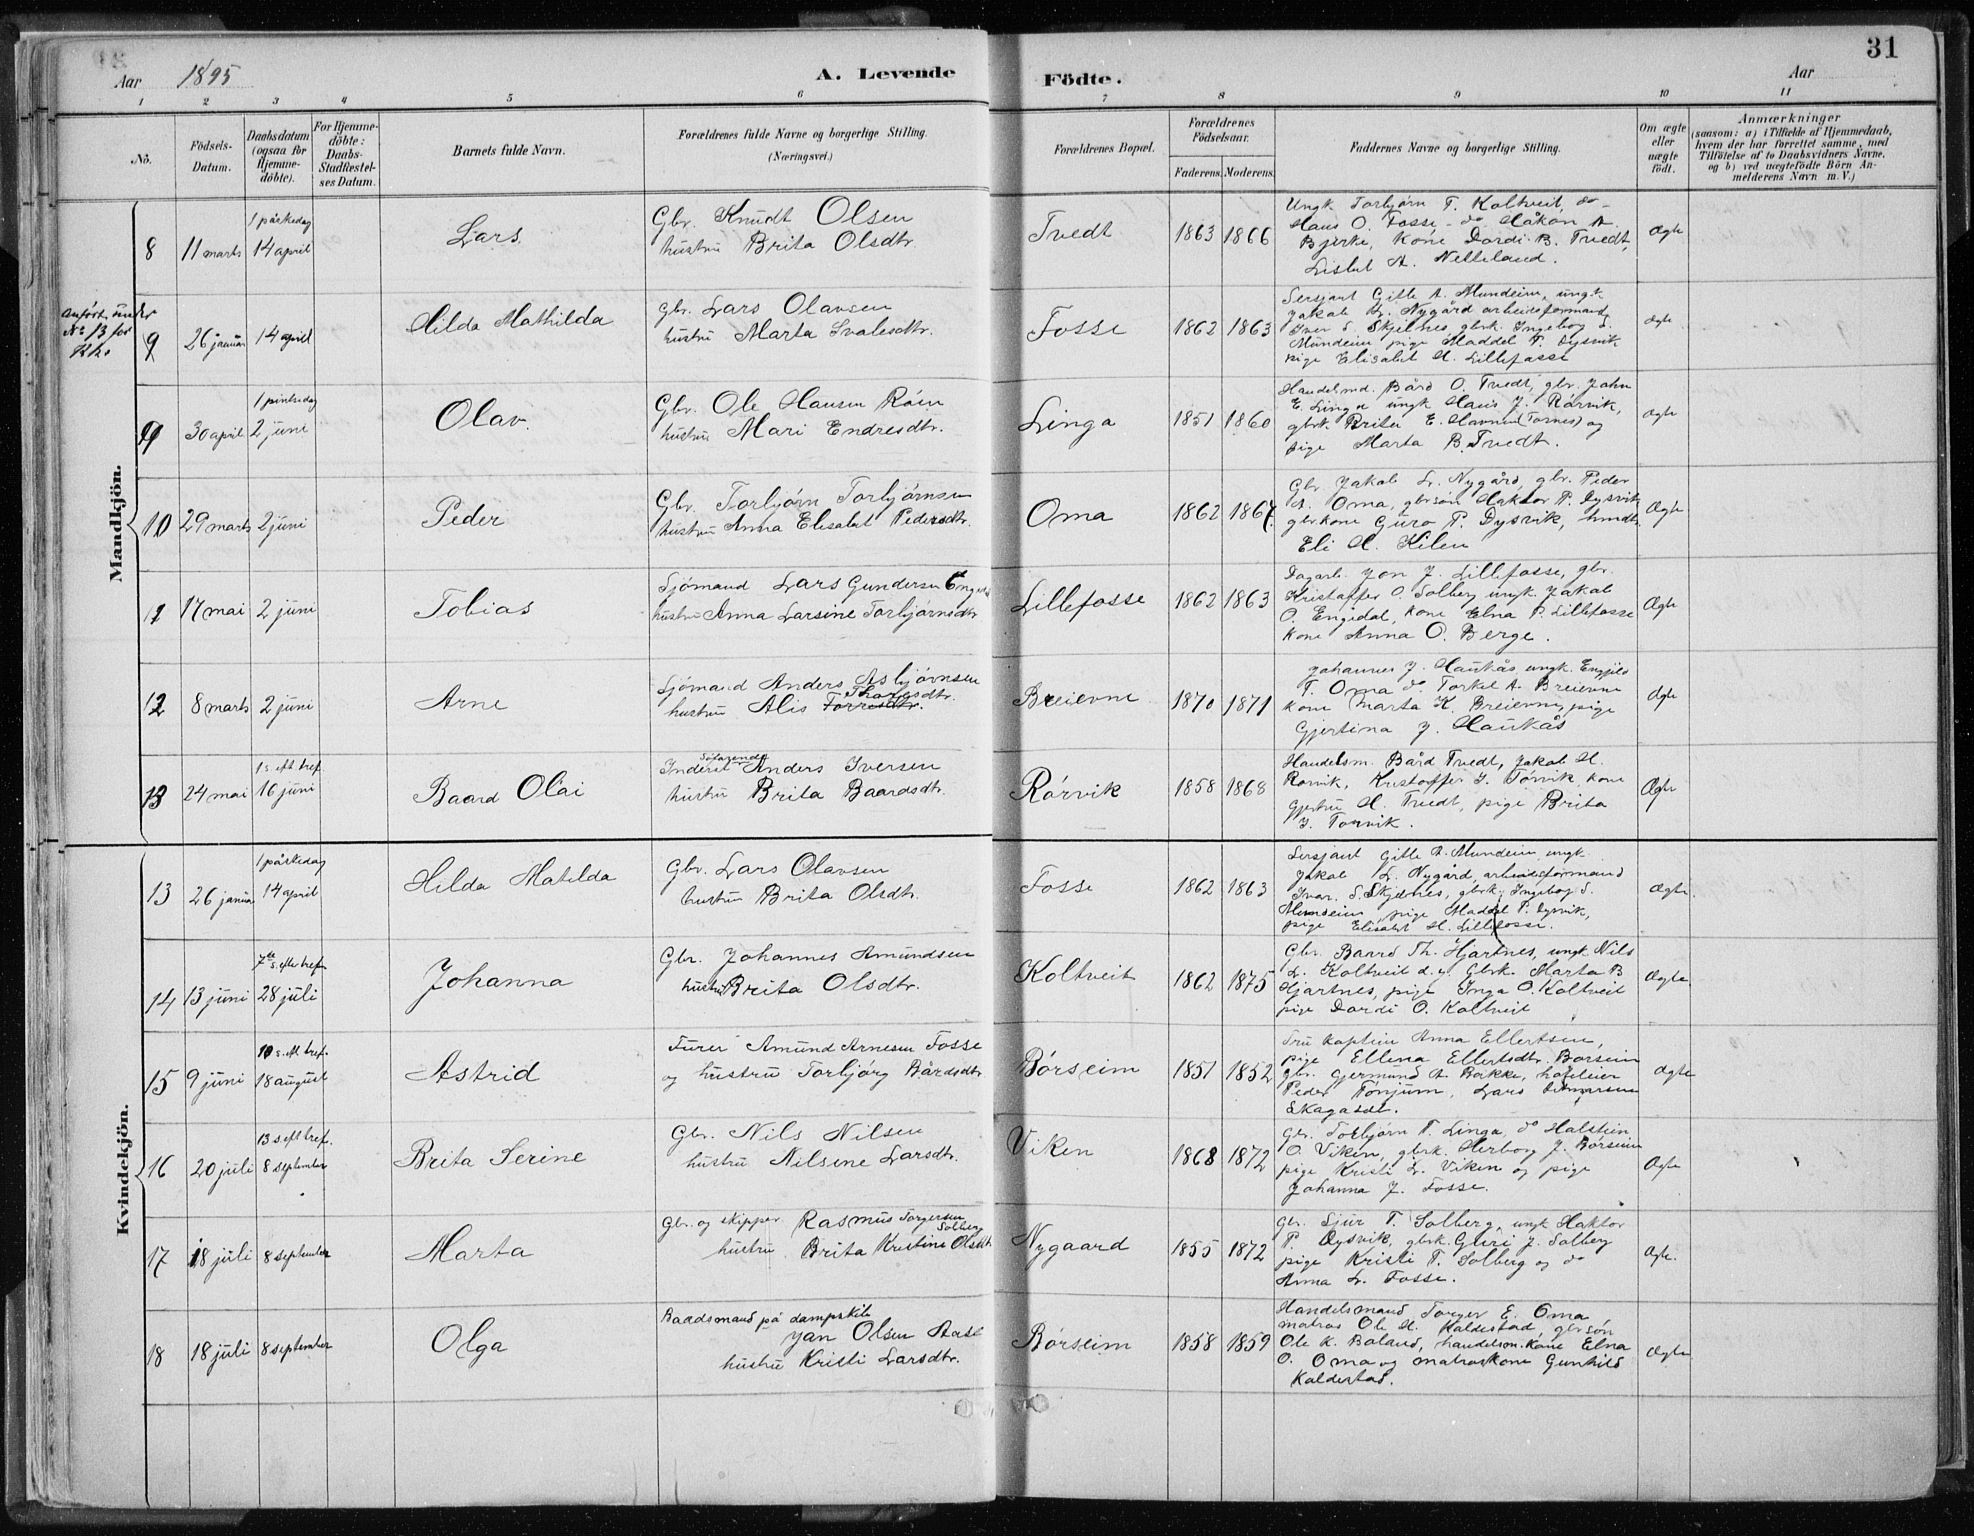 31
Aar 1895 A. Levende Födte. Aar
1 2 3 4 5 6 7 8 9 10 11
Nö.
Födsels-Datum.
Daabsdatum (ogsaa for Hjemme-döbte).
For Hjemme-döbte: Daabs-Stadfæstel-ses Datum.
Barnets fulde Navn.
Forældrenes fulde Navne og borgerlige Stilling.
(Næringsvei.)
Forældrenes Bopæl.
Forældrenes Födselsaar.
Faderens. Moderens.
Faddernes Navne og borgerlige Stilling.
Om ægte eller uægte født.
Anmærkninger
(saasom: a) i Tilfælde af Hjemmedaab,
hvem der har forrettet samme, med
Tilföielse af to Daabsvidners Navne,
og b) ved uægtefödte Börn An-
melderens Navn m. V.)
Mandkjön.
8 11 marts 1 påskedag 14 april
Lars
Gbr. Knudt Olsen
hustru Brita Olsdtr.
Tvedt 1863 1866
Ungk Torbjørn T. Koltveit, do
Hans O. Fosse do Håkon A.
Bjerke, Kone Dordi B. Tvedt,
Lisbet A. Netteland.
Ægte
Anført under
No 13 for
9 26 januar 14 april
Hilda Mathilda
Gbr. Lars Olavsen
hustru Marta Ivalesdtr.
Fosse 1862 1863
Sersjant Gitle A. Mundeim, ungk.
Jakob L. Nygård arbeidsformand
Iver S. Skjelnes gbrk. Ingeborg S.
Mundeim pige Maddel P. Dysvik
pige Elisabet H. Lillefosse
Ægte
9 30 april 1 pintsedag 2 juni
Olav
Gbr. Ole Hansen Røen
hustru Mari Endresdtr.
Linga 1851 1860
Handelmd. Bård O. Tvedt, gbr. John
E. Linga ungk Hans J. Rørvik,
gbrk. Brita E. Havnen (Tornes) og
pige Marta B. Tvedt.
Ægte
10 29 marts 2 juni
Peder
Gbr. Torbjørn Torbjørnsen
hustru Anna Elisabet Pedersdtr.
Oma 1862 1867
Gbr. Jakob L. Nygård, gbr. Peder
A. Oma, gbrsøn Haktor P. Dysvik
gbrkone Guro P. Dysvik,
Eli H. Kilen
Ægte
11 17 mai 2 juni
Tobias
Sjömand Lars Gundersen
hustru Anna Larsine Torbjørnsdtr
Lillefosse 1862 1863
Dagarb. Jon J. Lillefosse, gbr.
Kristoffer O. Solberg ungk. Jakob
O. Engedal, Kone Elna P. Lillefosse
Kone Anna O. Berge.
Ægte
12 8 marts 2 juni
Arne
Sjömand Anders Asbjørnsen
hustru Alis Torresdtr.
Breievne 1870 1871
Johannes J. Haukås ungk. Engjild
T. Oma do Torkel A. Breievne
Kone Marta K. Breievne, pige
Gjertina J. Haukås
Ægte
13 24 mai 1 s. eft tref 16 juni
Baard Olai
Inderst Anders Iversen
hustru Brita Baardsdtr.
Rørvik 1858 1868
Handelsm. Bård Tvedt, Jakob H.
Rørvik, Kristoffer J. Tørvik, Kone
Gjertru H. Tvedt, pige Brita
J. Tørvik.
Ægte
Kvindekjön.
13 26 januar 1 påskedag 14 april
Hilda Matilda
Gbr. Lars Olavsen
hustru Brita Olsdtr.
Fosse 1862 1863
Sersjant Gitle A. Mundeim ungk.
Jakob L. Nygård, arbeidsformand
Ivar S. Skjelnes, gbrk. Ingebog S.
Mundeim, pige Maddel P. Dysvik,
pige Elisabet H. Lillefosse.
Ægte.
14 13 juni 7de s. efter tref 28 juli
Johanna
Gbr. Johannes Amundsen
hustru Brita Olsdtr.
Koltveit 1862 1875
Gbr. Baard Th. Hjartnes, ungk Nils
L. Koltveit d.y. Gbrk. Marta B
Hjartnes, pige Inga O. Koltveit
pige Dordi O. Koltveit
Ægte.
15 9 juni 10 s. eft tref. 18 august
Astrid
Furer Amund Arnesen Fosse
og hustru Torbjörg Bårdsdtr
Börseim 1851 1852
Fru Kaptein Anna Ellertsen,
pige Ellena Ellertsdtr. Borseim
gbr. Gjermund A. Bakke, hofeleier
Peder Tönjum, Lars
Skagasdt.
Ægte
16 20 juli 13 s. eft tref. 8 september
Brita Serine
Gbr. Nils Nilsen
hustru Nilsine Larsdtr.
Viken 1868 1872
Gbr. Torbjørn T. Linga, do Halstein
O. Viken, gbrk. Herborg J. Börseim
pige Kristi L. Viken og pige
Johanna J. Fosse.
Ægte
17 18 juli 8 september
Marta
Gbr. og skipper Rasmus Torgersen Solberg
hustru Brita Kristine Olsdtr
Nygaard 1855 1872
Gbr. Sjur T. Solberg, ungk Haktor
P. Dysvik, gbrk. Guri J. Solberg
pige Kristi T. Solberg og do
Anna L. Fosse.
Ægte.
18 18 juli 8 september
Olga
Baadsmand på dampskib
Jan Olsen Aase
hustru Kristi Larsdtr.
Börseim 1858 1859
Handelsmand Torger E. Oma
matros Ole H. Kaldestad, gbrsøn
Ole K. Boland, handelsm. Kone Elna
O. Oma og matroskone Gunhild
Kaldestad.
Ægte